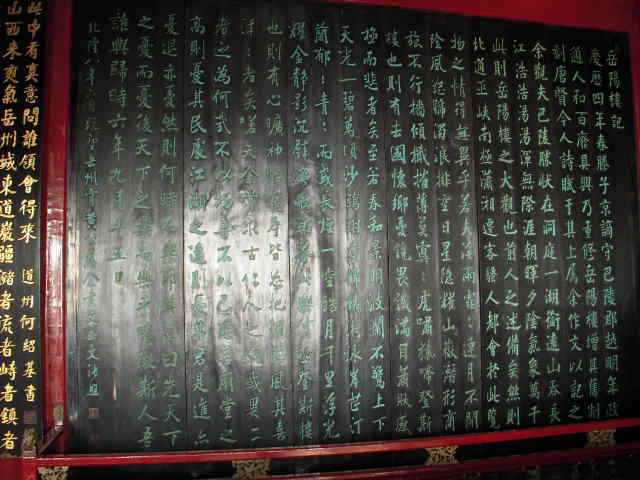 岳陽樓記
慶歷四年春滕子京謫守巴陵郡越明年政
通人和百廢具興乃重修岳陽樓增其舊制
刻唐賢今人詩賦于其上屬余作文以記之
余觀夫巴陵勝狀在洞庭一湖銜遠山吞長
江浩浩湯湯渾無際涯朝暉夕陰氣象萬千
此則岳陽樓之大觀也前人之述備矣然則
北通巫峽南極瀟湘遷客騷人都會於此覽
物之情得無異乎若夫淫雨霏霏連月不開
陰風怒號濁浪排空日星隱耀山嶽潛形商
旅不行檣傾楫摧薄暮冥冥虎嘯猿啼登斯
樓也則有去國懷鄉憂讒畏譏滿目蕭然感
極而悲者矣至若春和景明波瀾不驚上下
天光一碧萬頃沙鷗翔集錦鱗游泳岸芷汀
蘭郁郁青青而或長煙一空皓月千里浮光
耀金靜影沉璧漁歌互答此樂何極登斯樓
也則有心曠神怡寵辱皆忘把酒臨風其喜
洋洋者矣嗟夫余嘗求古仁人之心或異二
者之為何哉不以物喜不以己悲居廟堂之
高則憂其民處江湖之遠則憂其君是進亦
憂退亦憂然則何時而樂耶其必曰先天下
之憂而憂後天下之樂而樂乎噫微斯人吾
誰與歸時六年九月十五日
此中有真意問誰領會得來 道州何紹基書
山西來爽氣岳州城東道巖疆瀦者流者峙者鎮者